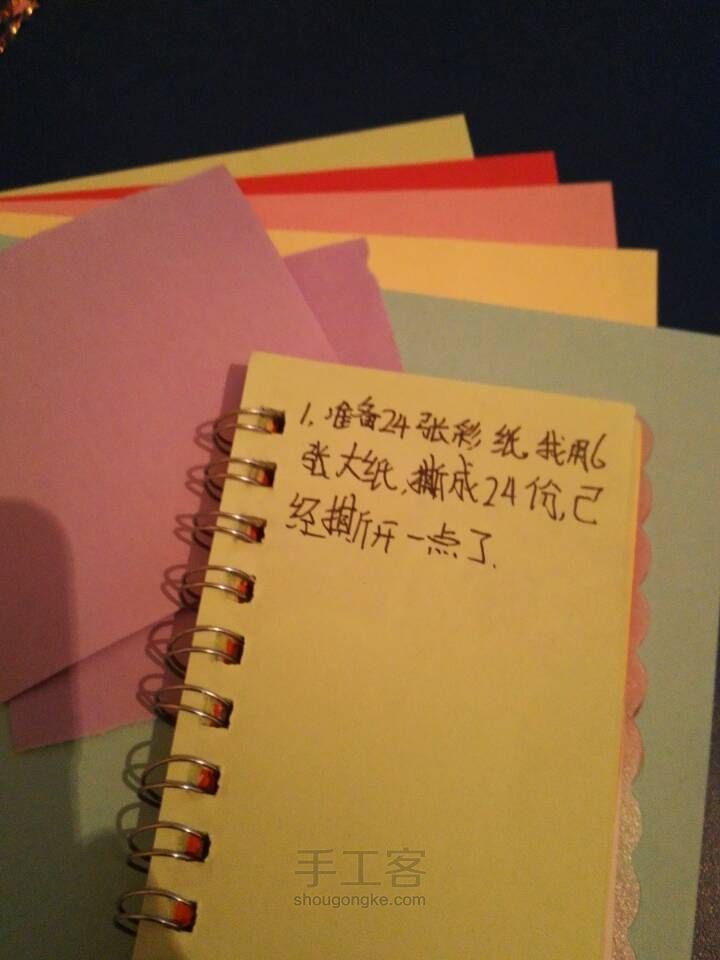 1.准备24张彩纸.我用6
张大纸,撕成24份,已
经撕开一点了.
手工客
shougongke.com